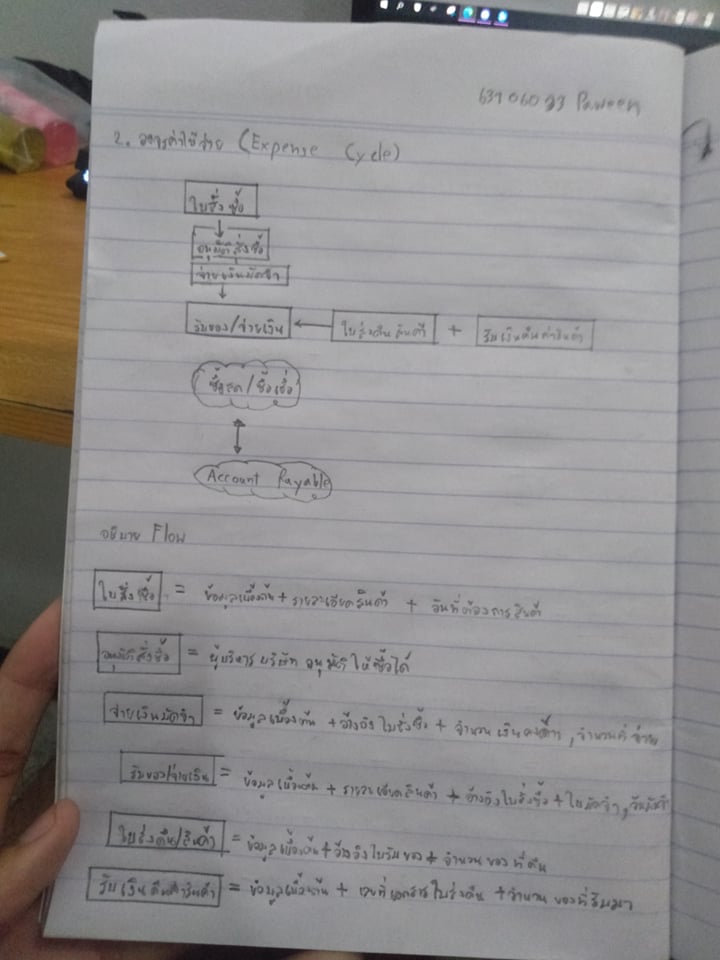 63106093 Paween
2. วงจรค่าใช้จ่าย (Expense Cycle)
ใบสั่งซื้อ
อนุมัติสั่งซื้อ
จ่ายเงินมัดจำ
รับของ/จ่ายเงิน ใบส่งคืนสินค้า + รับเงินคืนค่าสินค้า
ซื้อสด/ซื้อเชื่อ
Account Payable
อธิบาย Flow
ใบสั่งซื้อ = ข้อมูลเบื้องต้น + รายละเอียดสินค้า + วันที่ต้องการสินค้า
อนุมัติสั่งซื้อ = ผู้บริหารบริษัท อนุมัติให้ซื้อได้
จ่ายเงินมัดจำ = ข้อมูลเบื้องต้น + อ้างอิงใบสั่งซื้อ + จำนวนเงินคงค้าง, จำนวนที่จ่าย
รับของ/จ่ายเงิน = ข้อมูลเบื้องต้น + รายละเอียดสินค้า + อ้างอิงใบสั่งซื้อ + ใบมัดจำ,
ใบส่งคืน/สินค้า = ข้อมูลเบื้องต้น + อ้างอิงใบรับของ + จำนวนของที่คืน
รับเงินคืนค่าสินค้า = ข้อมูลเบื้องต้น + เลขที่เอกสารใบส่งคืน + จำนวนของที่รับมา